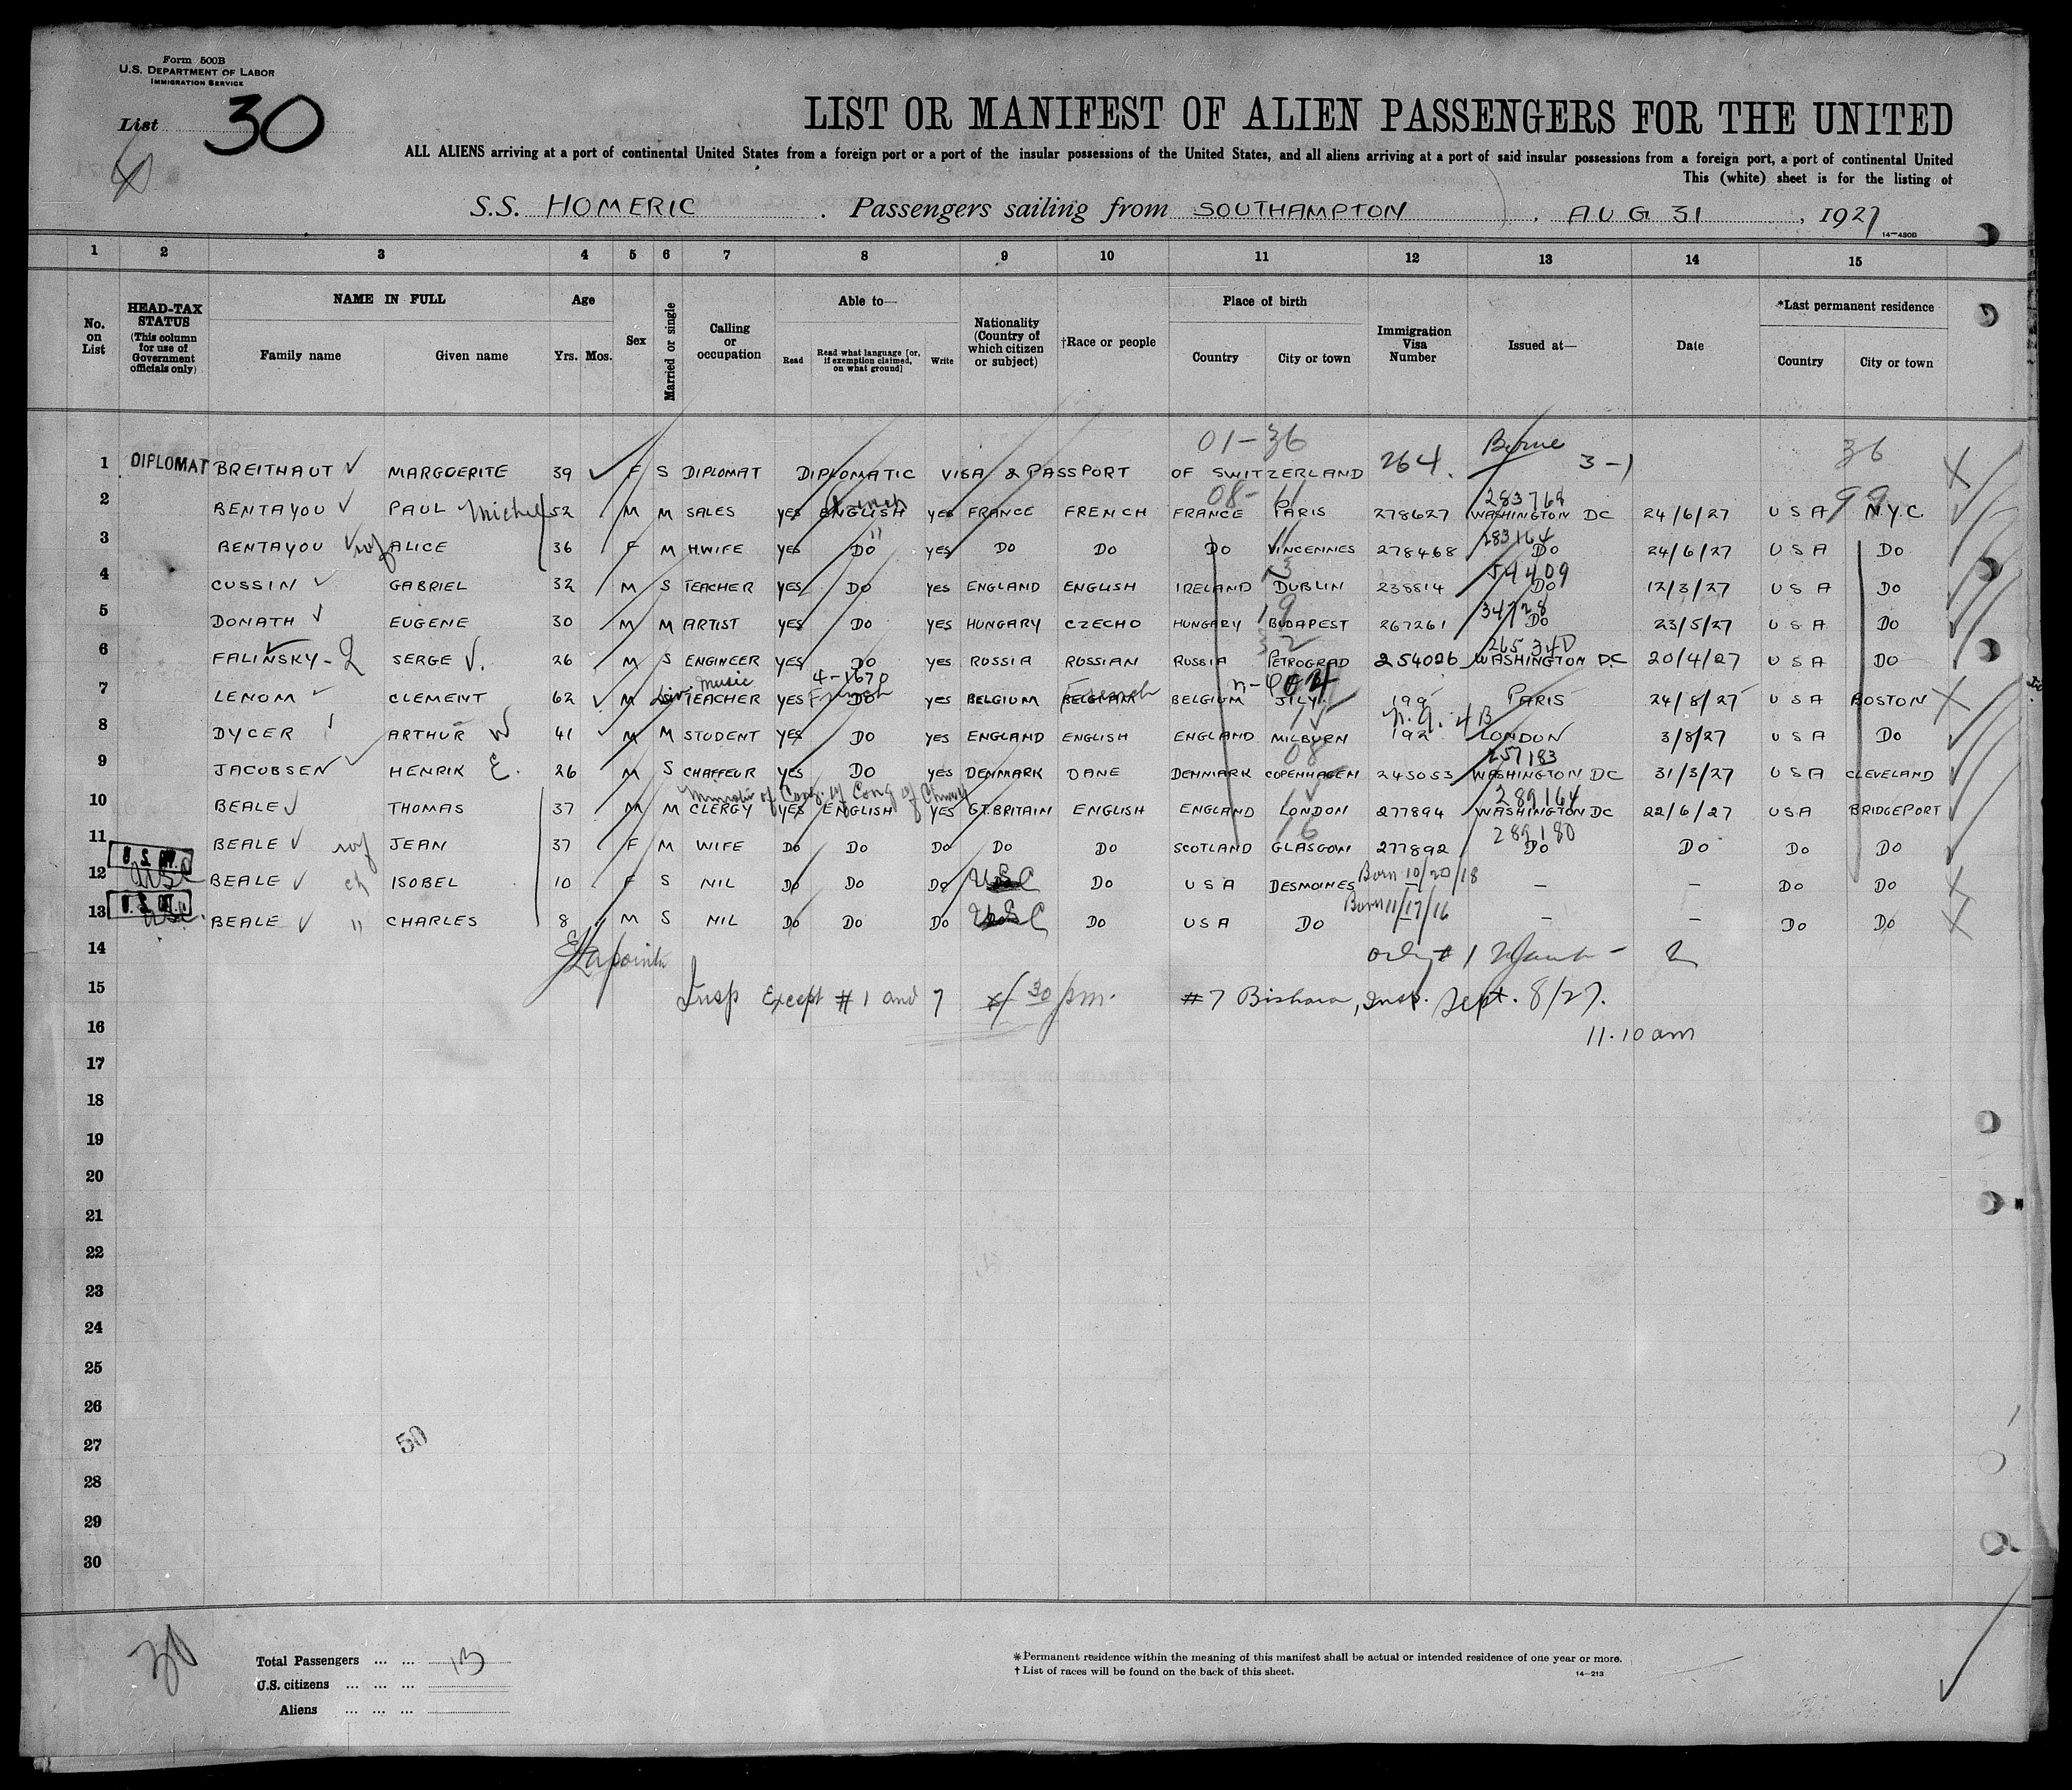 Form 500B
U.S. DEPARTMENT OF LABOR
IMMIGRATION SERVICE
List 30
LIST OR MANIFEST OF ALIEN PASSENGERS FOR THE UNITED
ALL ALIENS arriving at a port of continental United States from a foreign port or a port of the insular possessions of the United States, and all aliens arriving at a port of said insular possessions from a foreign port, a port of continental United
This (white) sheet is for the listing of
S.S. HOMERIC. Passengers sailing from SOUTHAMPTON, AUG 31, 1927
14-430B
1 2 3 4 5 6 7 8 9 10 11 12 13 14 15
No. on List
HEAD-TAX STATUS (This column for use of Government officials only)
NAME IN FULL
Family name Given name
Age
Yrs. Mos.
Sex
Married or single
Calling or occupation
Able to—
Read Read what language [or, if exemption claimed, on what ground] Write
Nationality (Country of which citizen or subject)
†Race or people
Place of birth
Country City or town
Immigration Visa Number
Issued at—
Date
*Last permanent residence
Country City or town
01-36 Berne 36
1 DIPLOMAT BREITHAUT MARGUERITE 39 F S DIPLOMAT DIPLOMATIC VISA & PASSPORT OF SWITZERLAND 264. 3-1
French 08- 11 283768 99
2 BENTAYOU PAUL Michel 52 M M SALES YES ENGLISH YES FRANCE FRENCH FRANCE PARIS 278627 WASHINGTON DC 24/6/27 USA N.Y.C.
" 283164
3 BENTAYOU wf ALICE 36 F M H.WIFE YES DO YES DO DO DO VINCENNES 278468 DO 24/6/27 USA DO
13 54409
4 CUSSIN GABRIEL 32 M S TEACHER YES DO YES ENGLAND ENGLISH IRELAND DUBLIN 238814 DO 12/3/27 USA DO
19 34728
5 DONATH EUGENE 30 M M ARTIST YES DO YES HUNGARY CZECHO HUNGARY BUDAPEST 267261 DO 23/5/27 USA DO
32 265340
6 FALINSKY SERGE V. 26 M S ENGINEER YES DO YES RUSSIA RUSSIAN RUSSIA PETROGRAD 254026 WASHINGTON D.C 20/4/27 USA DO
music 4-1670 French French 04
7 LENOM CLEMENT 62 M TEACHER YES DO YES BELGIUM BELGIAN BELGIUM JILY 199 PARIS 24/8/27 USA BOSTON
n.q. 4B
8 DYCER ARTHUR W 41 M M STUDENT YES DO YES ENGLAND ENGLISH ENGLAND MILBURN 192 LONDON 3/8/27 USA DO
08 257183
9 JACOBSEN HENRIK E. 26 M S CHAFFEUR YES DO YES DENMARK DANE DENMARK COPENHAGEN 245053 WASHINGTON DC 31/3/27 USA CLEVELAND
Minister of Cong. of Church 289164
10 BEALE THOMAS 37 M M CLERGY YES ENGLISH YES GT.BRITAIN ENGLISH ENGLAND LONDON 277894 WASHINGTON DC 22/6/27 USA BRIDGEPORT
16 289180
11 BEALE wf JEAN 37 F M WIFE DO DO DO DO DO SCOTLAND GLASGOW 277892 DO DO DO DO
12 USC BEALE ch ISOBEL 10 F S NIL DO DO DO USC DO USA DESMOINES Born 10/20/18 — — DO DO
13 USC. BEALE " CHARLES 8 M S NIL DO DO DO USC DO USA DO Born 11/17/16 — — DO DO
14 Lapointe only # 1
15 Insp Except # 1 and 7 30 pm. #7 Bishara, Insp. Sept. 8/27.
16 11.10 am
17
18
19
20
21
22
23
24
25
26
27 50
28
29
30
30
Total Passengers ... ... 13
U.S. citizens ... ... ...
Aliens ... ... ...
*Permanent residence within the meaning of this manifest shall be actual or intended residence of one year or more.
†List of races will be found on the back of this sheet. 14-213